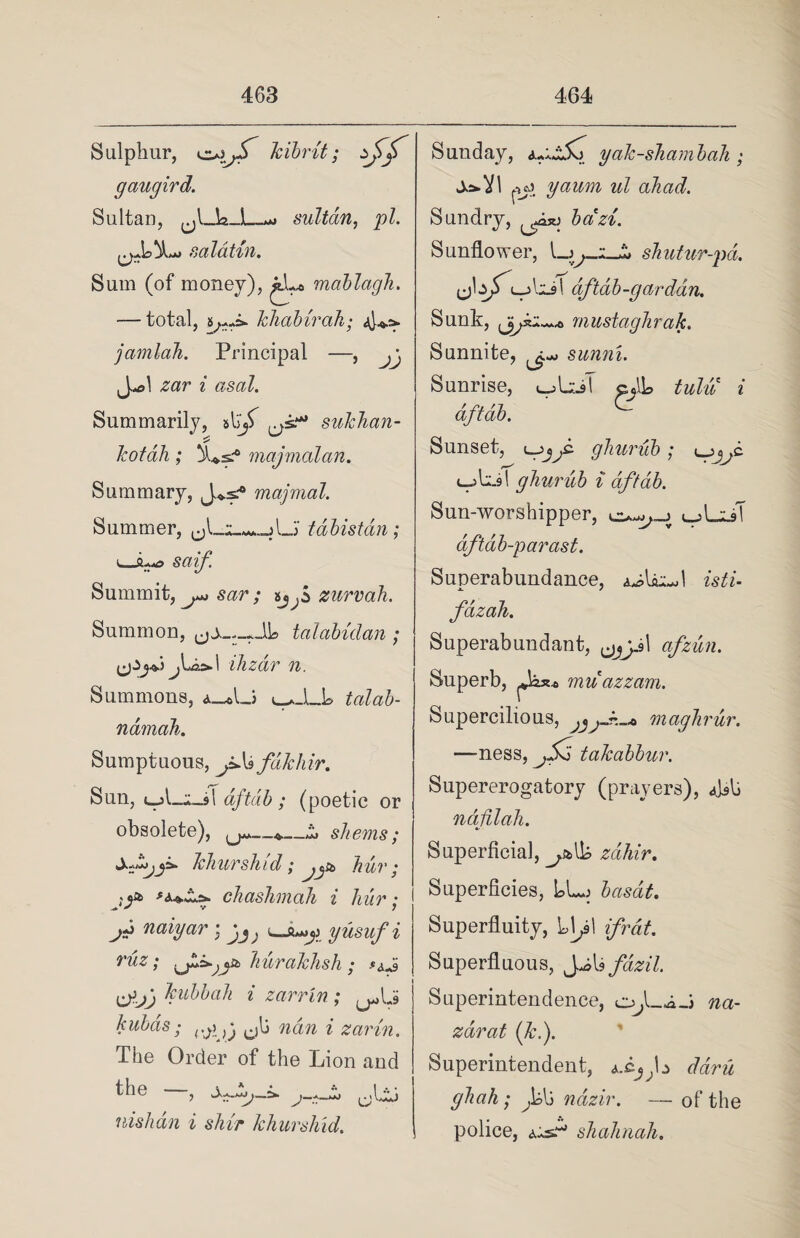 463
464
Sulphur, کبریت kibrít; گوگرد
gaugird.
Sultan, سلطان sultán, pl.
سلاطین salátín.
Sum (of money), مبلغ mablagh.
— total, خبیره khabírah; جمله
jamlah. Principal —, زر
اصل zar i asal.
Summarily, سخن کوتاه sukhan-
kotáh; مجملاً majmalan.
Summary, مجمل majmal.
Summer, تابستان tábistán;
صیف saif.
Summit, سر sar; ذروه zurvah.
Summon, طلبیدن talabídan;
احضار نمودن ihzár n.
Summons, طلب نامه talab-
námah.
Sumptuous, فاخر fákhir.
Sun, آفتاب áftáb; (poetic or
obsolete), شمس shems;
خورشید khurshíd; هور húr;
چشمهٔ هور chashmah i húr;
نیر naiyar; یوسف روز yúsuf i
rúz; هورخش húrakhsh; قبهٔ
زرین kubbah i zarrín; قباس
kubás; نان زرین nán i zarín.
The Order of the Lion and
the —, نشان شیر خرشید
nishán i shír khurshíd.
Sunday, یکشنبه yak-shambah;
یوم الاحد yaum ul ahad.
Sundry, بعضی ba'zí.
Sunflower, شترپا shutur-pá.
آفتاب گردان áftáb-gardán.
Sunk, مستغرق mustaghrak.
Sunnite, سنی sunní.
Sunrise, طلوع آفتاب tulú' i
áftáb.
Sunset, غروب ghurúb; غروب
آفتاب ghurúb i áftáb.
Sun-worshipper, آفتاب پرست
áftáb-parast.
Superabundance, استفاضه isti-
fázah.
Superabundant, افزون afzún.
Superb, معظم mu'azzam.
Supercilious, مغرور maghrúr.
—ness, تکبر takabbur.
Supererogatory (prayers), نافله
náfilah.
Superficial, ظاهر záhir.
Superficies, بساط basát.
Superfluity, افراط ifrát.
Superfluous, فاضل fázil.
Superintendence, نظارت na-
zárat (k.).
Superintendent, داروغه dárú
ghah; ناظر názir. — of the
police, شحنه shahnah.